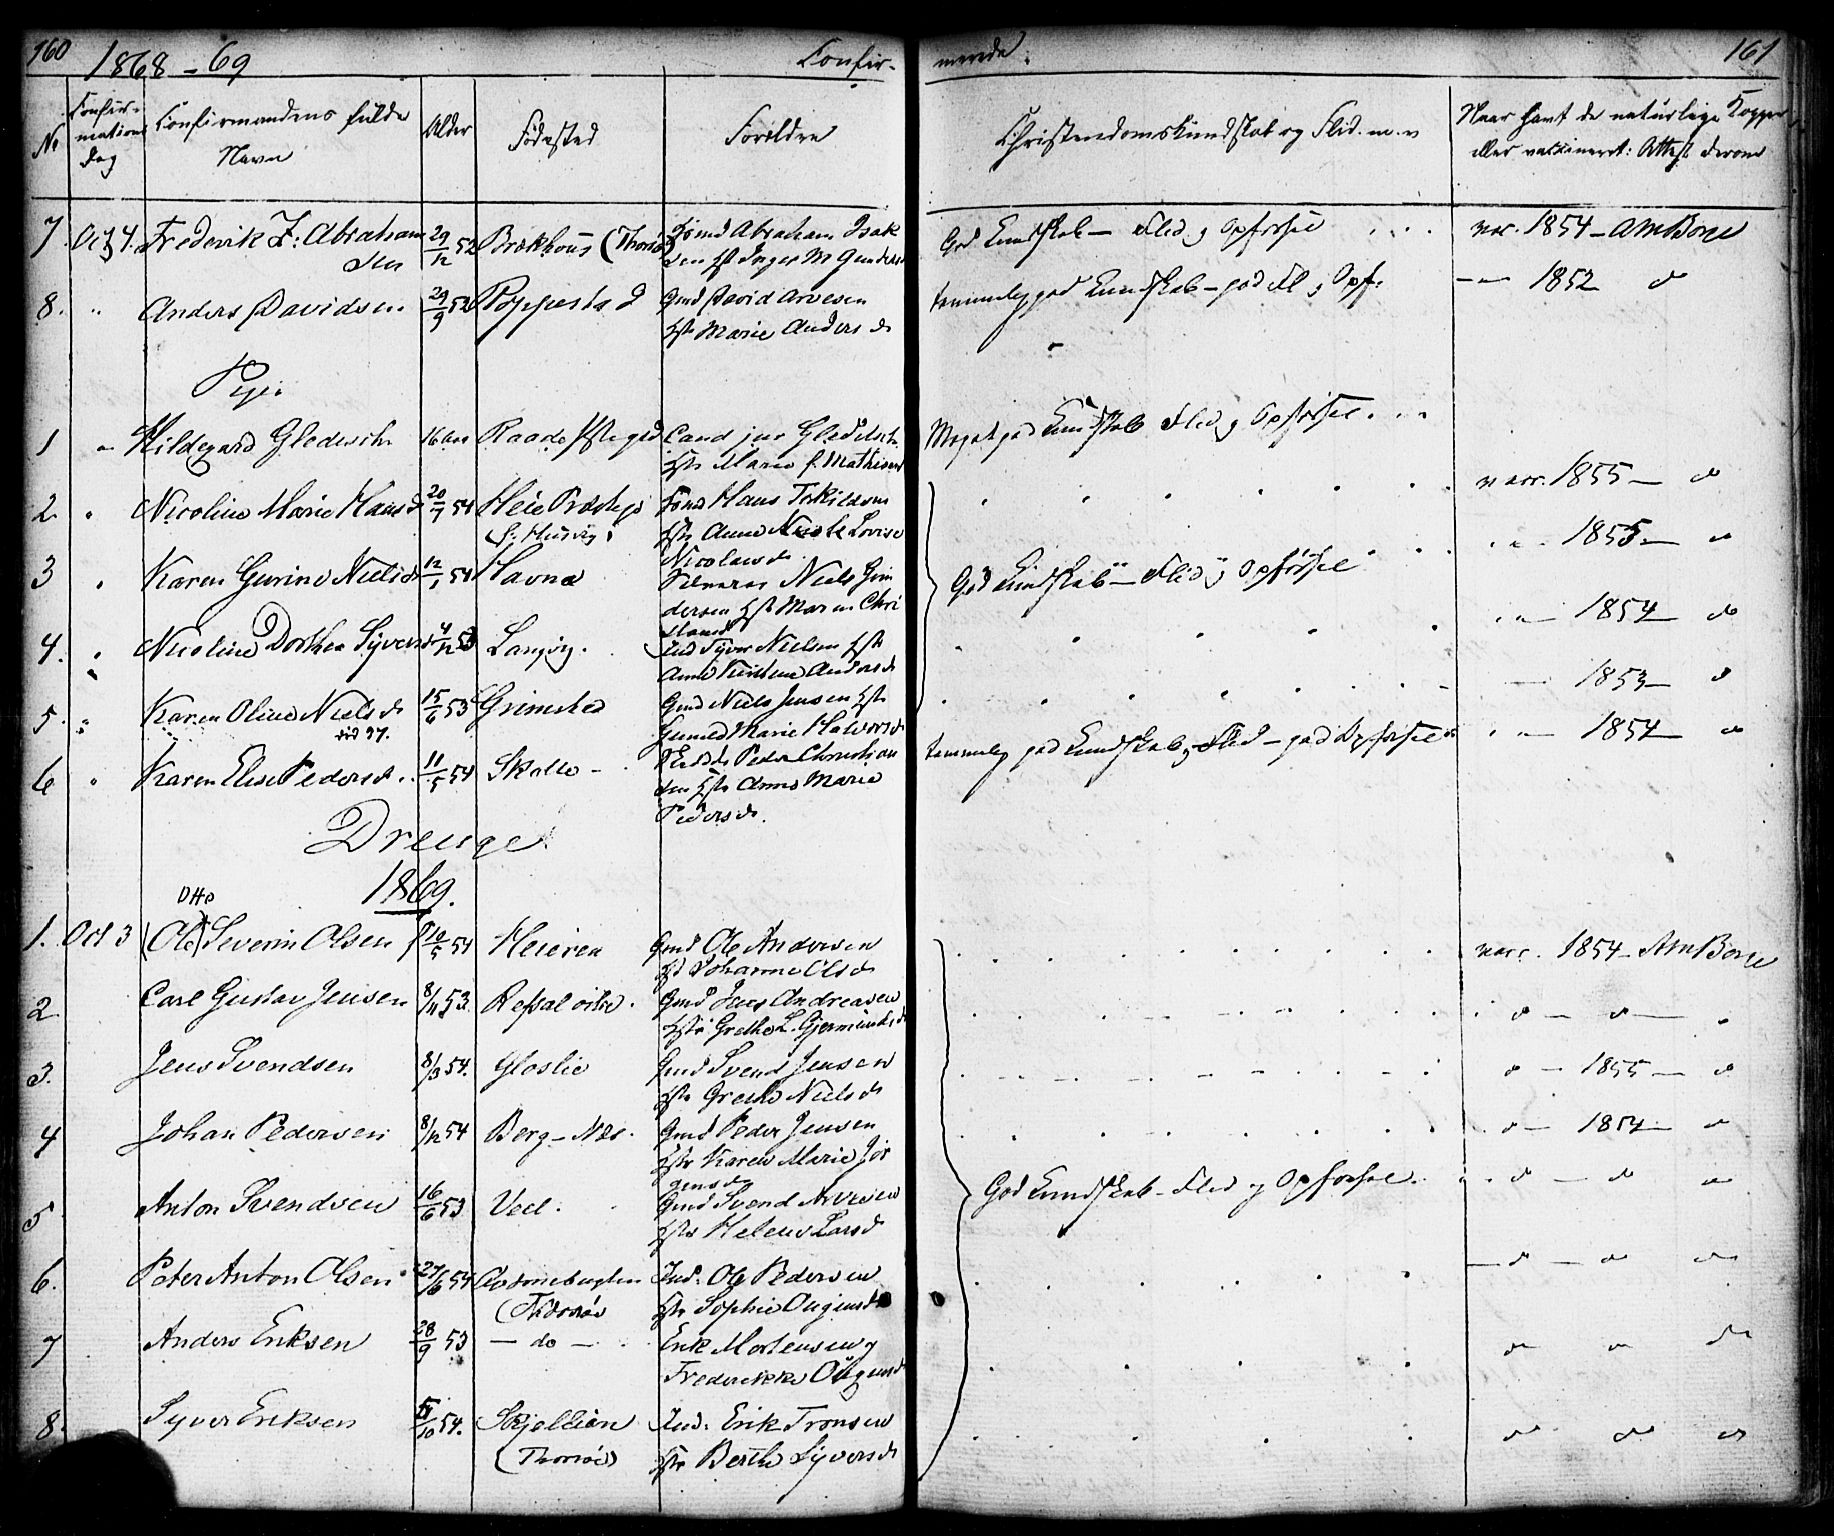 160
1868-69
Confir-
merede.
161
No
Confir-
mations
dag
Confirmandens fulde
Navn
Alder
Fødested
Forældre
Christendomskundskab og Flid. m. v
Naar havt de naturlige Kopper
eller vaccineret: Attest derom
7. Oct 4. Frederik Z: Abraham
sen
29/12 52
Brækhous (Thorsø)
Abraham Isak
sen Inger M
God Kundskab - Flid og Opførsel
vac. 1854 - AMBorge
8. " Anders Davidsen
29/9 52
Poppestad
Gmd David Arvesen
Hst Marie Anders d
temmelig god Kundskab - god Fl og Opf.
- 1852 do
Piger
1 " Hildegard Gleditsch
16 Aar
Raade Præstegd
Cand jur Gleditsch
Hst Maren f. Mathisen
Meget god Kundskab Flid og Opførsel
2 " Nicoline Marie Hans d
20/7 54
Heie Præstegd
Hans
Hst Anne Lovise
Nicolausd.
vacc. 1855 - do
3 " Karen Gurine Niels d
12/1 54
Havna
Niels Gun
dersen Hst Maren Chri
stansd
God Kundskab - Flid og Opførsel
" 1855 - do
4. " Nicoline Dorthea Syvers d
4/12 53
Langvig.
Ind Syver Nielsen Hst
Anne Anders d
" 1854 do
5. " Karen Oline Niels d
15/6 53
Grimsted
Gmd Niels Jensen Hst
Gunild Marie Halvors d
- 1853 - do
6 " Karen Elise Peders d.
11/5 54
Skatto -
Peder Christian
sen Hst Anne Marie
Peders d.
temmelig god Kundskab, Flid - god Opførsel
" 1854 - do
Drenge.
1869.
Otto
1. Oct 3 (Ole) Severin Olsen
10/5 54
Heieren
Gmd Ole Andersen
Hst Johanne Ols d
vacc. 1854 - AMBorge
2 Carl Gustav Jensen
8/11 53
Refsal
Gmd Jens Andreasen
Hst Grethe L. Gjermunds d
do - do -
3. Jens Svendsen
8/3 54.
Gloslie
Gmd Svend Jensen
Hst Grethe Niels d
do - 1855 - do
4 Johan Pedersen
8/12 54
Berg - Næs.
Gmd Peder Jensen
Hst Karen Marie Jør
gens d
do - 1854 - do
5 Anton Svendsen
16/6 53
Veel.
Gmd Svend Arvesen
Hst Helene Lars d
God Kundskab - Flid og Opførsel.
do - do do
6. Peter Anton Olsen
27/6 54
(Thorsø)
Ind. Ole Pedersen
Hst Sophie
- do - do do
7 Anders Eriksen
28/9 53
- do -
Erik Mortensen og
Frederikke
do do do
8. Syver Eriksen
/10 54.
Skjellien
(Thorsøe)
Ind. Erik Tronsen
Hst Berthe Syvers d
do do do